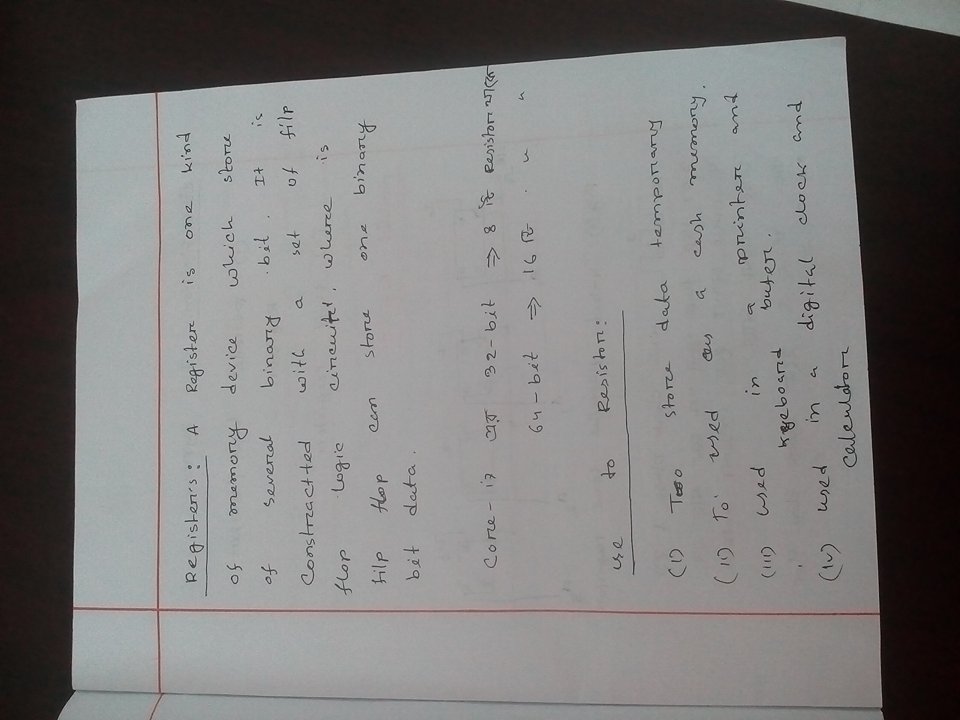 Registers: A Register is one kind
of memory device which store
of several binary bit. It is
Constractted with a set of filp
flop logic circuitt. where is
filp flop can store one binary
bit data.
Core-i7 এর 32-bit ⇒ 8 টি Resistor থাকে
64-bit ⇒ 16 টি " " "
use to Resistor:
(i) Too store data temporary
(ii) To used as a cash memory.
(iii) used in a printer and
keyboard buter.
(iv) used in a digital clock and
calculator